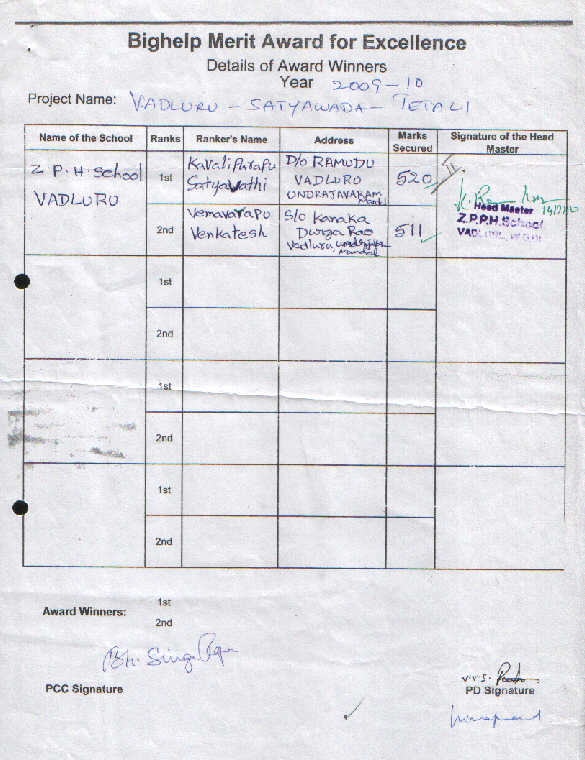 Bighelp Merit Award for Excellence
Details of Award Winners
Year 2009-10
Project Name: VADLURU - SATYAWADA - TETALI
Name of the School Ranks Ranker's Name Address Marks Secured Signature of the Head Master
Z P.H. School
VADLURU
1st
Kavaliparapu
Satyavathi
D/o RAMUDU
VADLURU
UNDRAJAVARAM
520
Head Master
Z.P.P.H. School
2nd
Vemavarapu
Venkatesh
S/o Kanaka
Durga Rao
Vadluru,
Mandal
511
1st
2nd
1st
2nd
1st
2nd
Award Winners: 1st
2nd
PCC Signature
V.V.S.
PD Signature